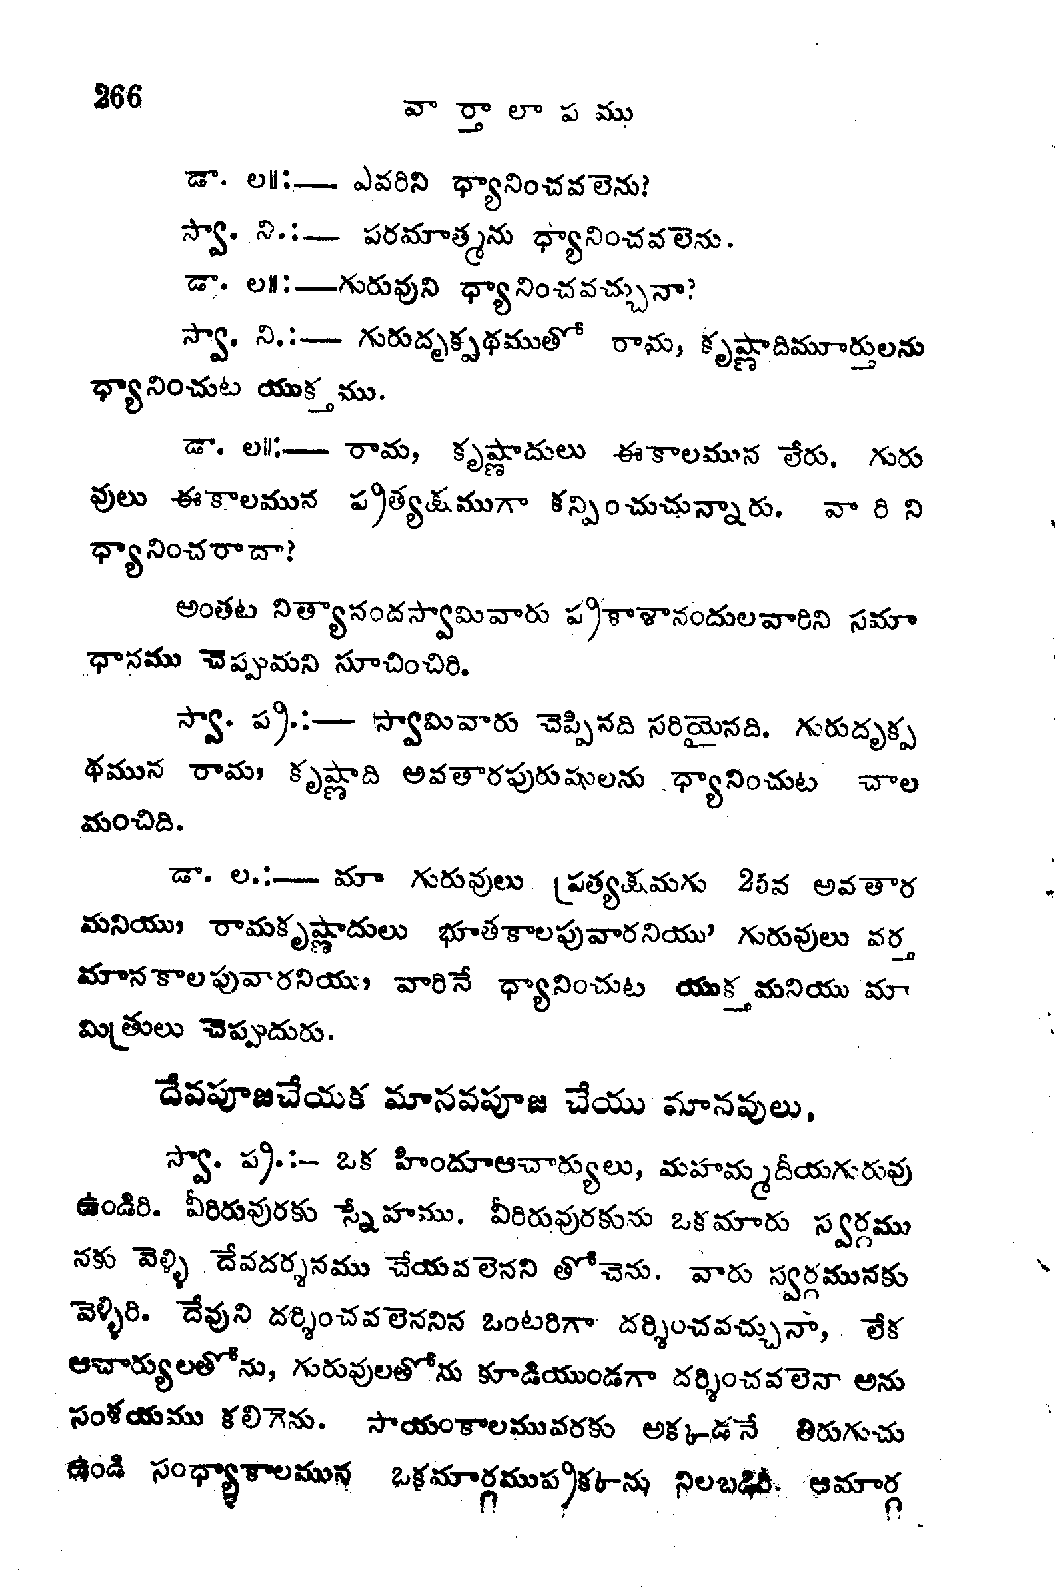 266
వా ర్తా లా ప ము
డా. ల॥:— ఎవరిని ధ్యానించవలెను?
స్వా. ని.:— పరమాత్మను ధ్యానించవలెను.
డా. ల॥:—గురువుని ధ్యానించవచ్చునా?
స్వా. ని.:— గురుదృక్పథముతో రామ, కృష్ణాదిమూర్తులను
ధ్యానించుట యుక్తము.
డా. ల॥:— రామ, కృష్ణాదులు ఈకాలమున లేరు. గురు
వులు ఈకాలమున ప్రత్యక్షముగా కన్పించుచున్నారు. వా రి ని
ధ్యానించరాదా?
అంతట నిత్యానందస్వామివారు ప్రకాశానందులవారిని సమా
ధానము చెప్పుమని సూచించిరి.
స్వా. ప్ర.:— స్వామివారు చెప్పినది సరియైనది. గురుదృక్ప
థమున రామ, కృష్ణాది అవతారపురుషులను ధ్యానించుట చాల
మంచిది.
డా. ల.:— మా గురువులు ప్రత్యక్షమగు 25వ అవతార
మనియు, రామకృష్ణాదులు భూతకాలపువారనియు, గురువులు వర్త
మానకాలపువారనియు, వారినే ధ్యానించుట యుక్తమనియు మా
మిత్రులు చెప్పుదురు.
దేవపూజచేయక మానవపూజ చేయు మానవులు.
స్వా. ప్ర.:— ఒక హిందూఆచార్యులు, మహమ్మదీయగురువు
ఉండిరి. వీరిరువురకు స్నేహము. వీరిరువురకును ఒకమారు స్వర్గము
నకు వెళ్ళి దేవదర్శనము చేయవలెనని తోచెను. వారు స్వర్గమునకు
వెళ్ళిరి. దేవుని దర్శించవలెననిన ఒంటరిగా దర్శించవచ్చునా, లేక
ఆచార్యులతోను, గురువులతోను కూడియుండగా దర్శించవలెనా అను
సంశయము కలిగెను. సాయంకాలమువరకు అక్కడనే తిరుగుచు
ఉండి సంధ్యాకాలమున ఒకమార్గముప్రక్కను నిలబడిరి. ఆమార్గ